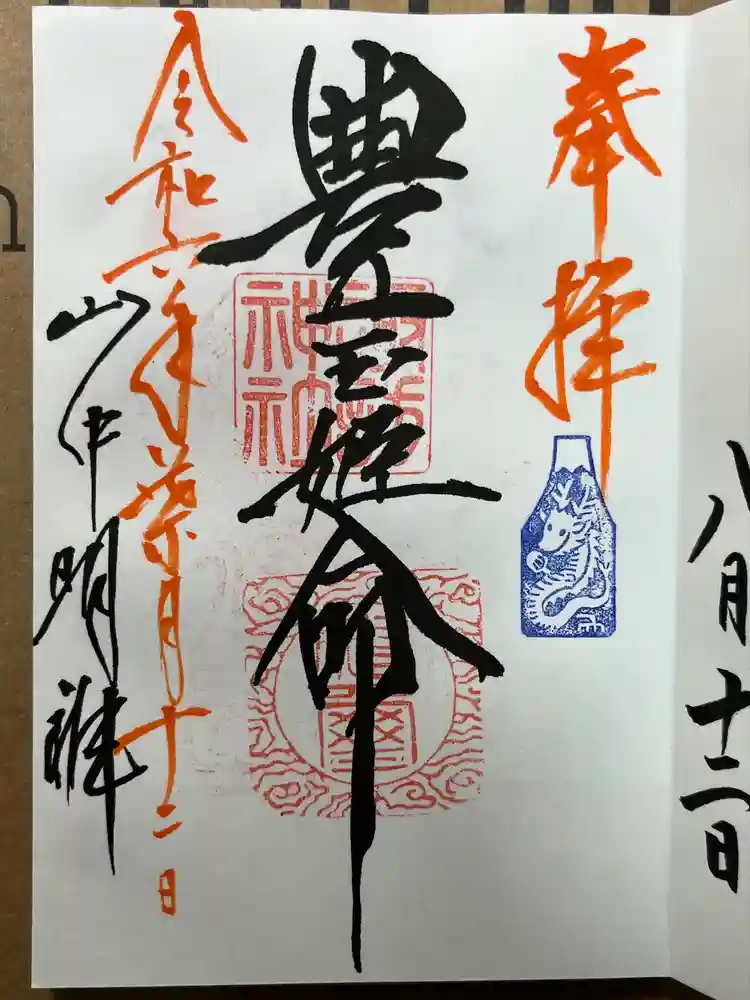 八月十二日
奉拝
豊玉姫命
令和六年葉月十二日
山中明雅